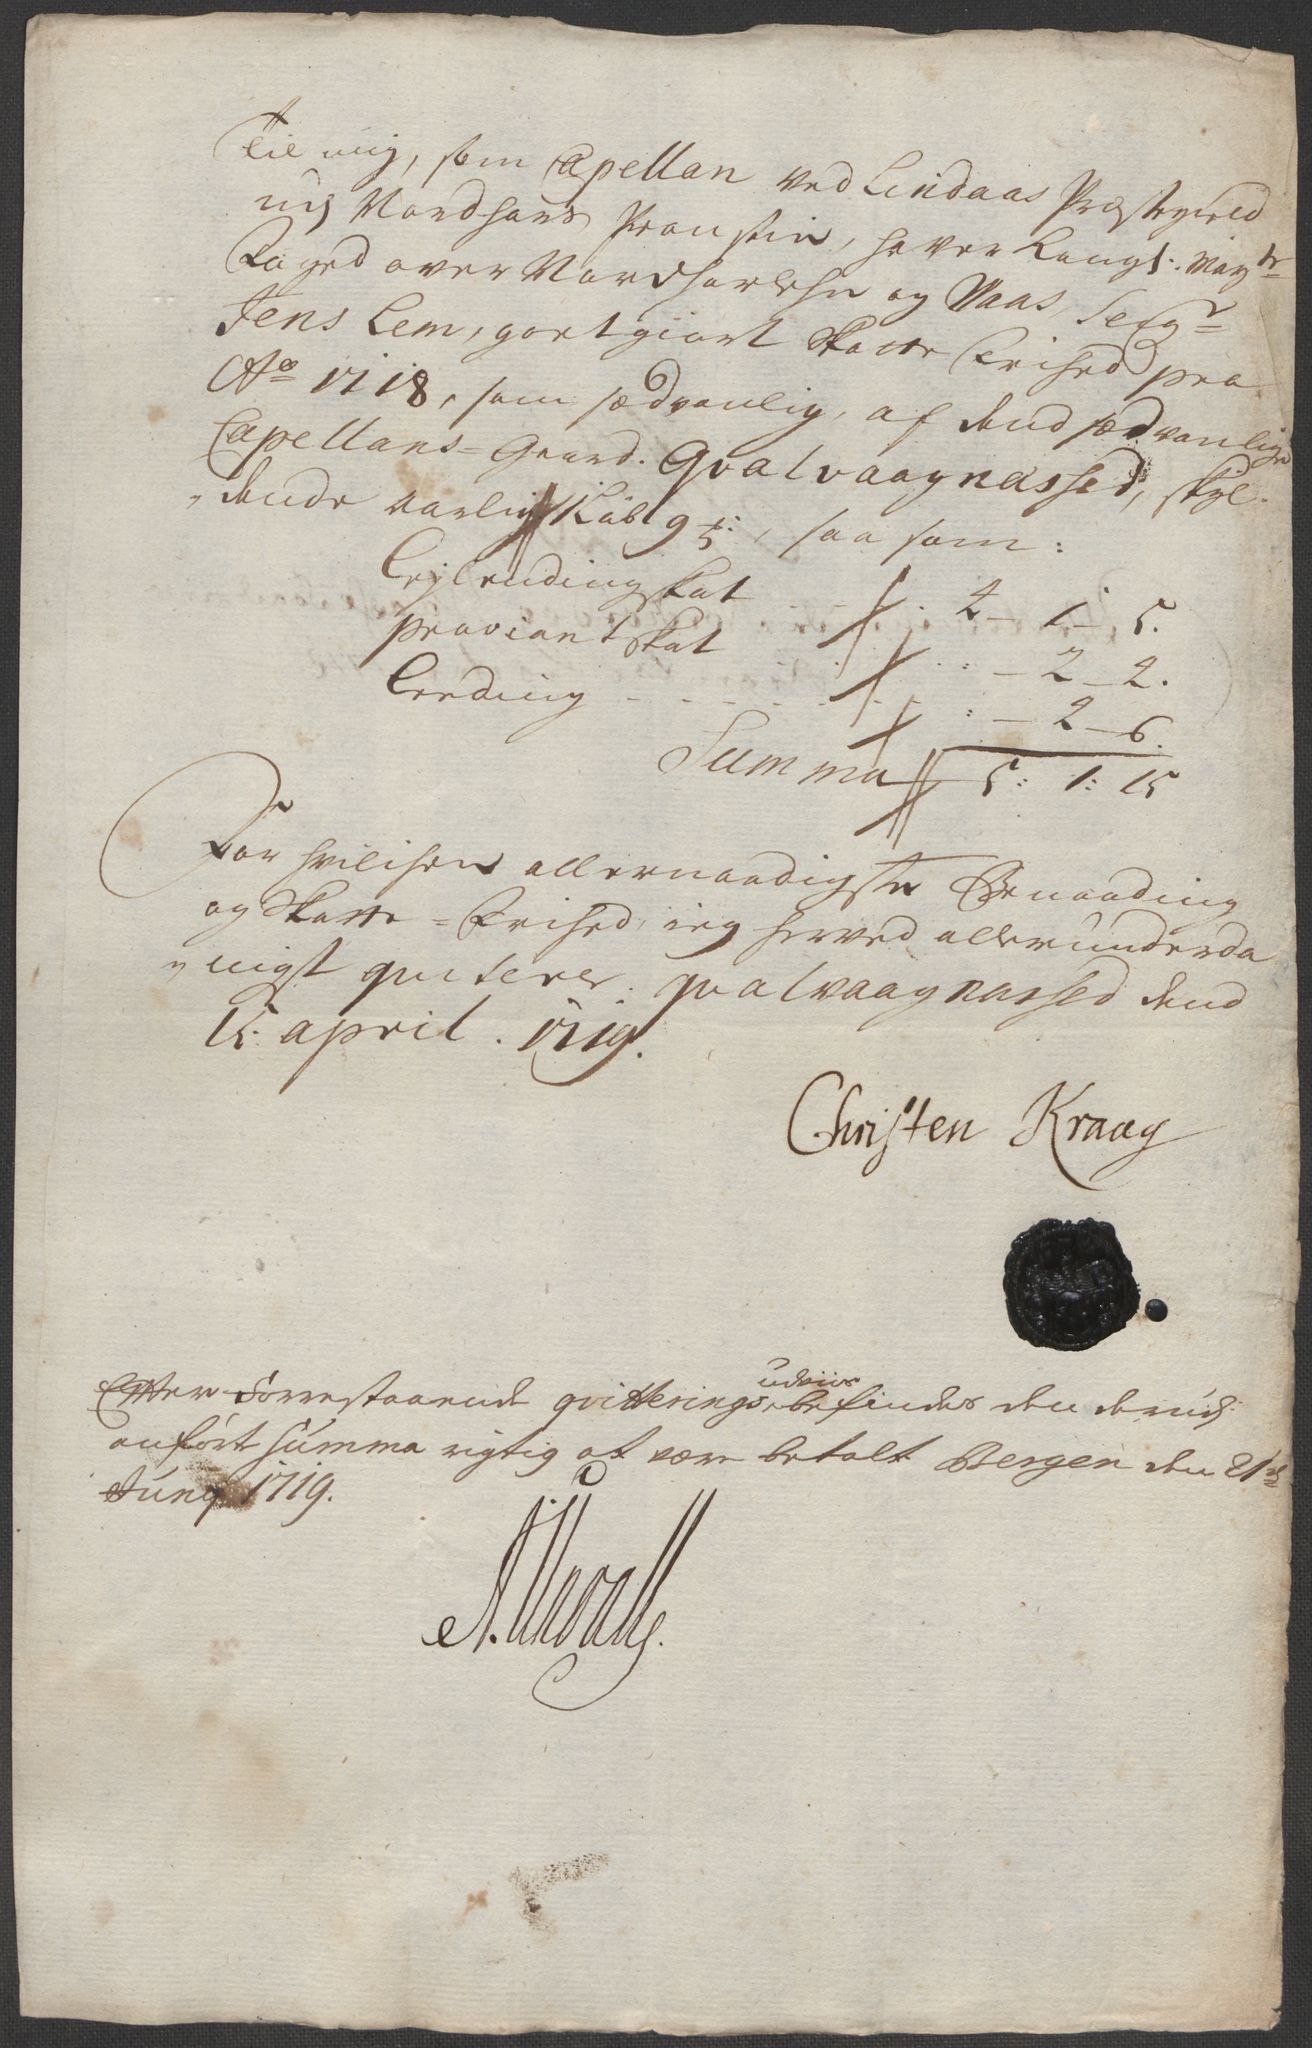 Til mig, som Capellan ved Lindaas Præstegield
udj Nordhors Proustie, haver Kongl: Mayts
Foged over Nordhorlehn og Waas, Sr
Jens Lem, goetgiort Skatte Frihed pro
Ao 1718, som sædvanlig, af dend sædvanlige
Capellans-Gaard Qvalvaagnæssed, skyl-
dende aarlig Løb, saa som:
Leylendingskat 4 – 1 – 5.
Proviantskat : – 2 – 2.
Leeding : – 2 – 6.
Summa 5: 1: 15
For hvilchen allernaadigste Benaading
og Skatte-Frihed, ieg herved allerunderda
nigst qviterer. Qvalvaagnæssed dend
15: april. 1719.
Christen Kraag
Effter Forrestaaende qvitterings udviis befindes den derudj
anført Summa rigtig at være betalt Bergen den 21de
Junj 1719.